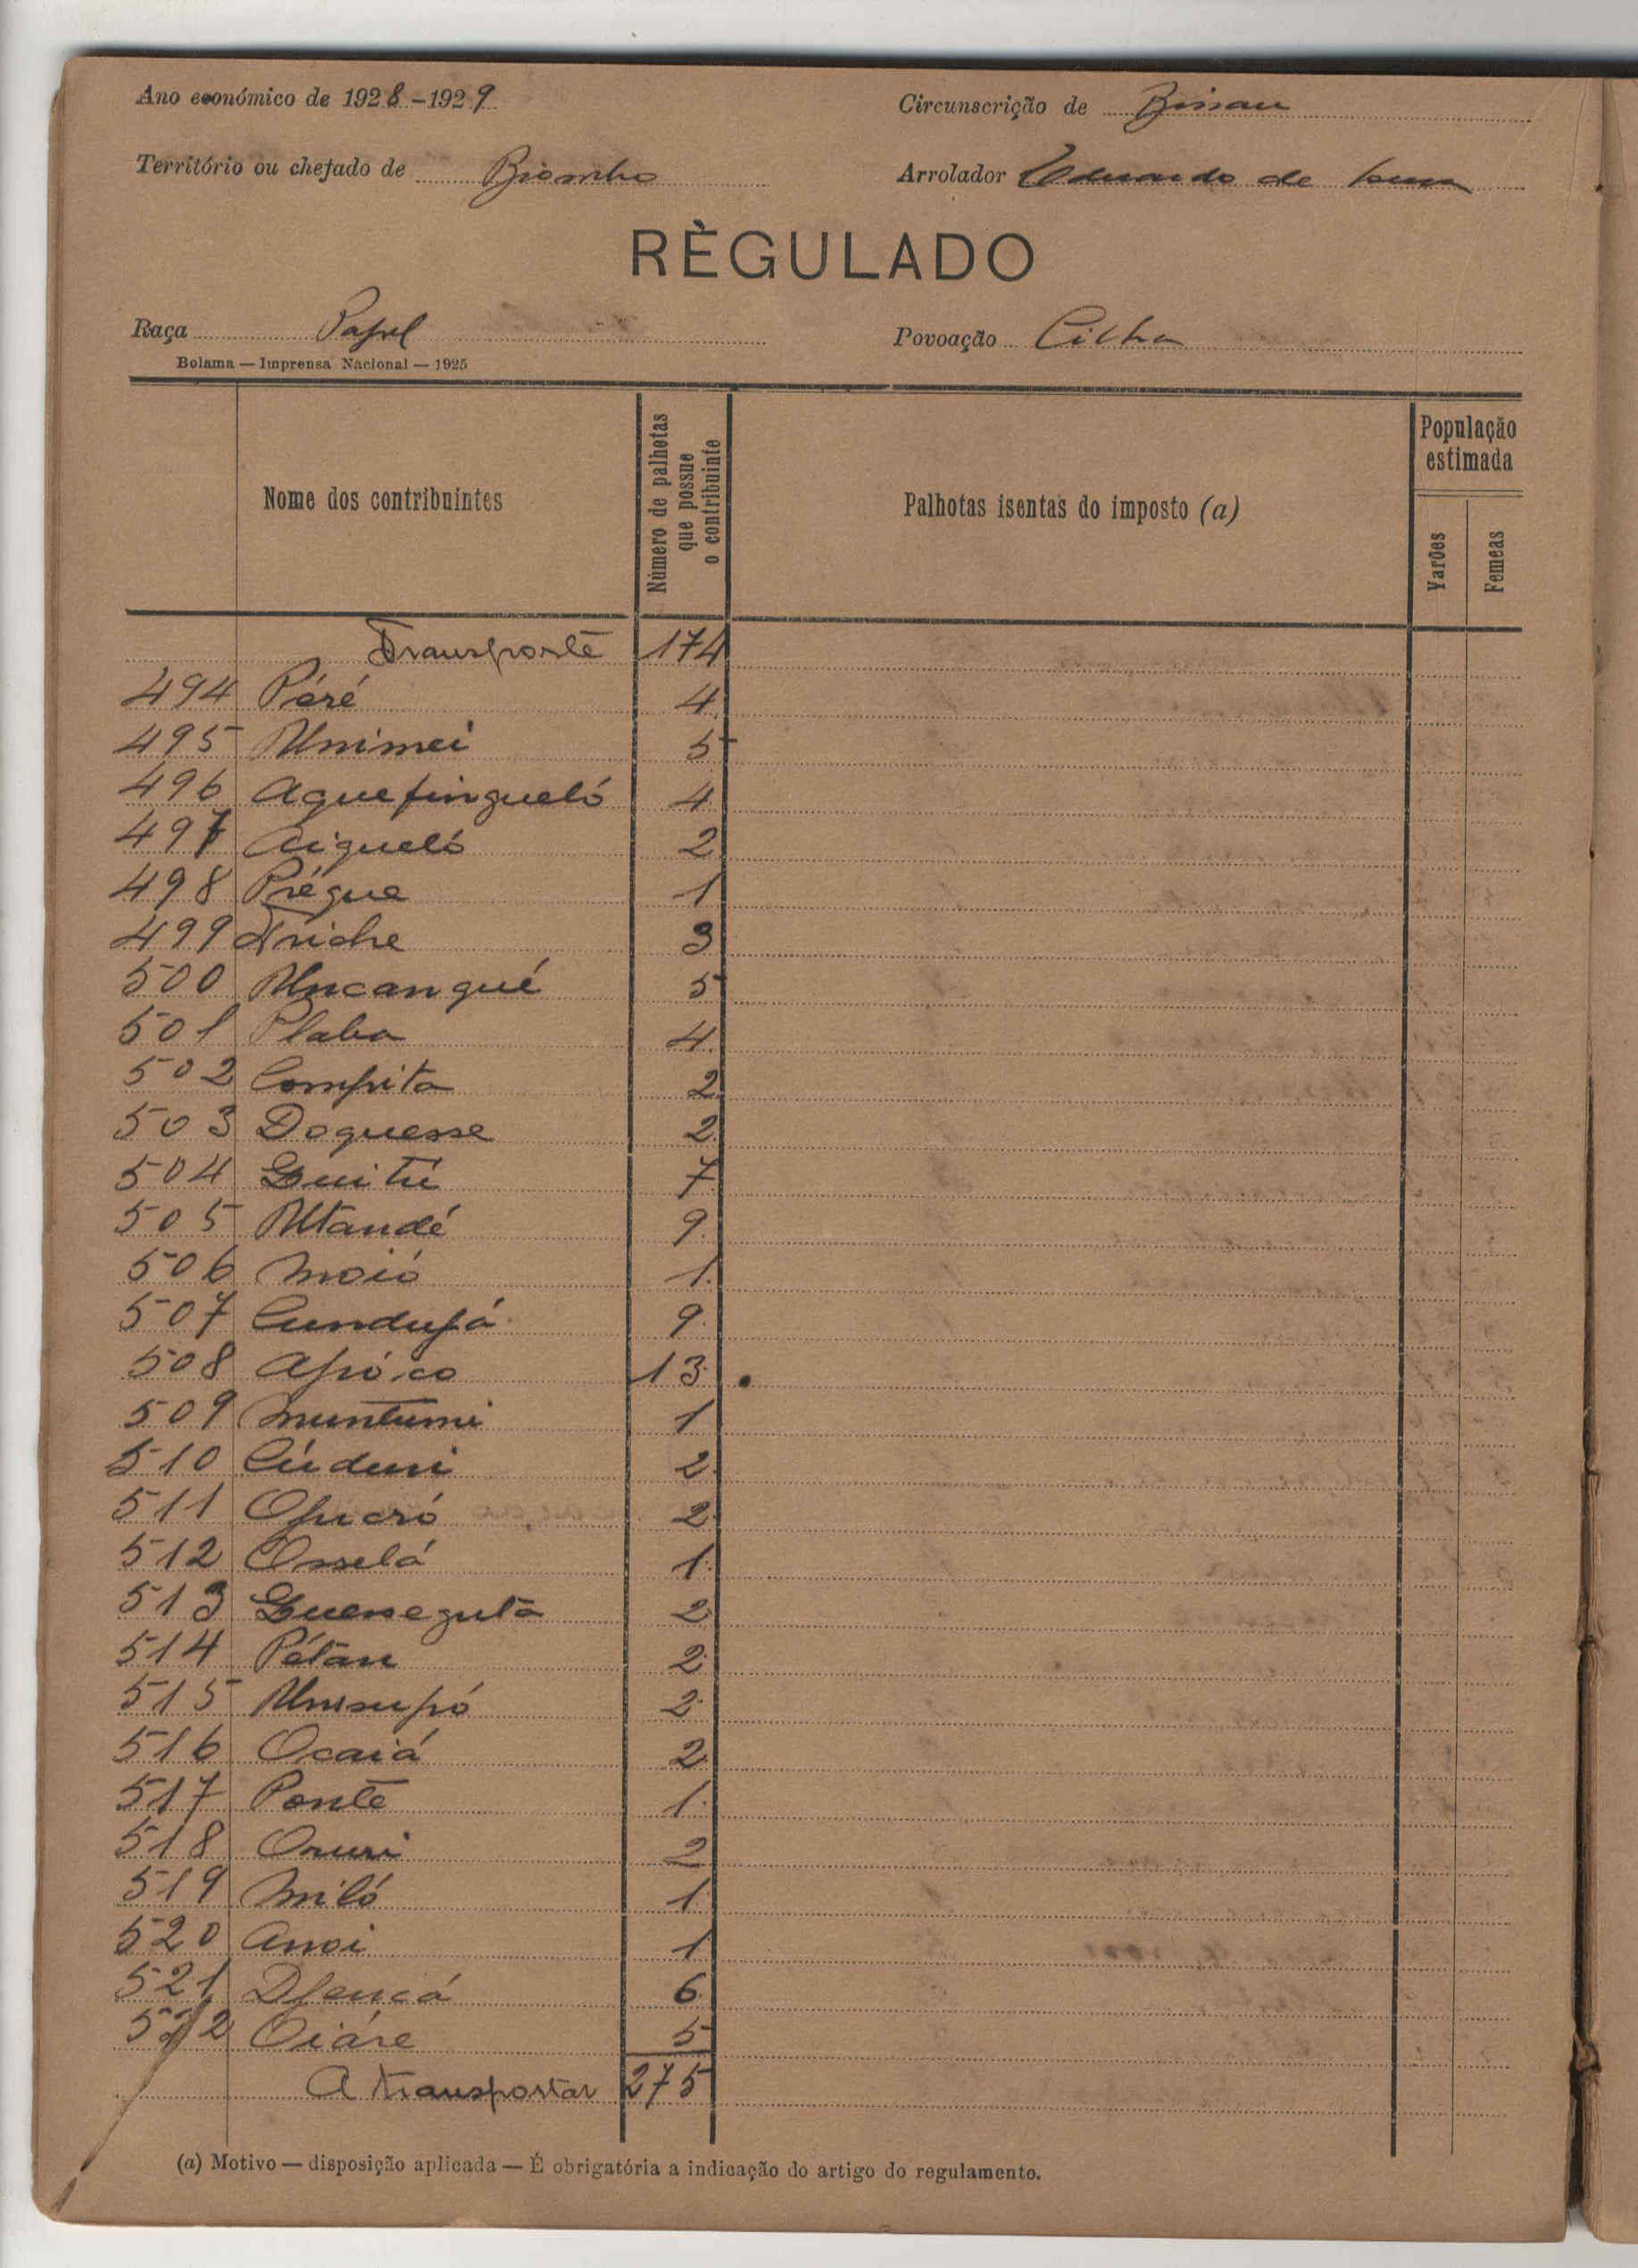 Ano económico de 1928-1929
Circunscrição de Bissau
Território ou chefado de Biombo
Arrolador Eduardo de Sousa
RÈGULADO
Raça Papel
Povoação Cilha
Bolama — Imprensa Nacional — 1925
Nome dos contribuintes
Número de palhotas que possue o contribuinte
Palhotas isentas do imposto (a)
População estimada
Varões
Femeas
Transporte 174
494 Péré 4
495 Unimei 5
496 Aquefingueló 4
497 Aigueló 2
498 Prégue 1
499 Triche 3
500 Uncangué 5
501 Plaba 4
502 Compita 2
503 Doguesse 2
504 Guitú 7
505 Utandé 9
506 Moió 1
507 Cundufá 9
508 Apóco 13
509 Muntumi 1
510 Cúduri 2
511 2
512 Osselá 1
513 Guenegutá 2
514 Pétan 2
515 2
516 Ocaiá 2
517 Ponte 1
518 Oruri 2
519 Miló 1
520 Anoi 1
521 6
522 5
A transportar 275
(a) Motivo — disposição aplicada — É obrigatória a indicação do artigo do regulamento.